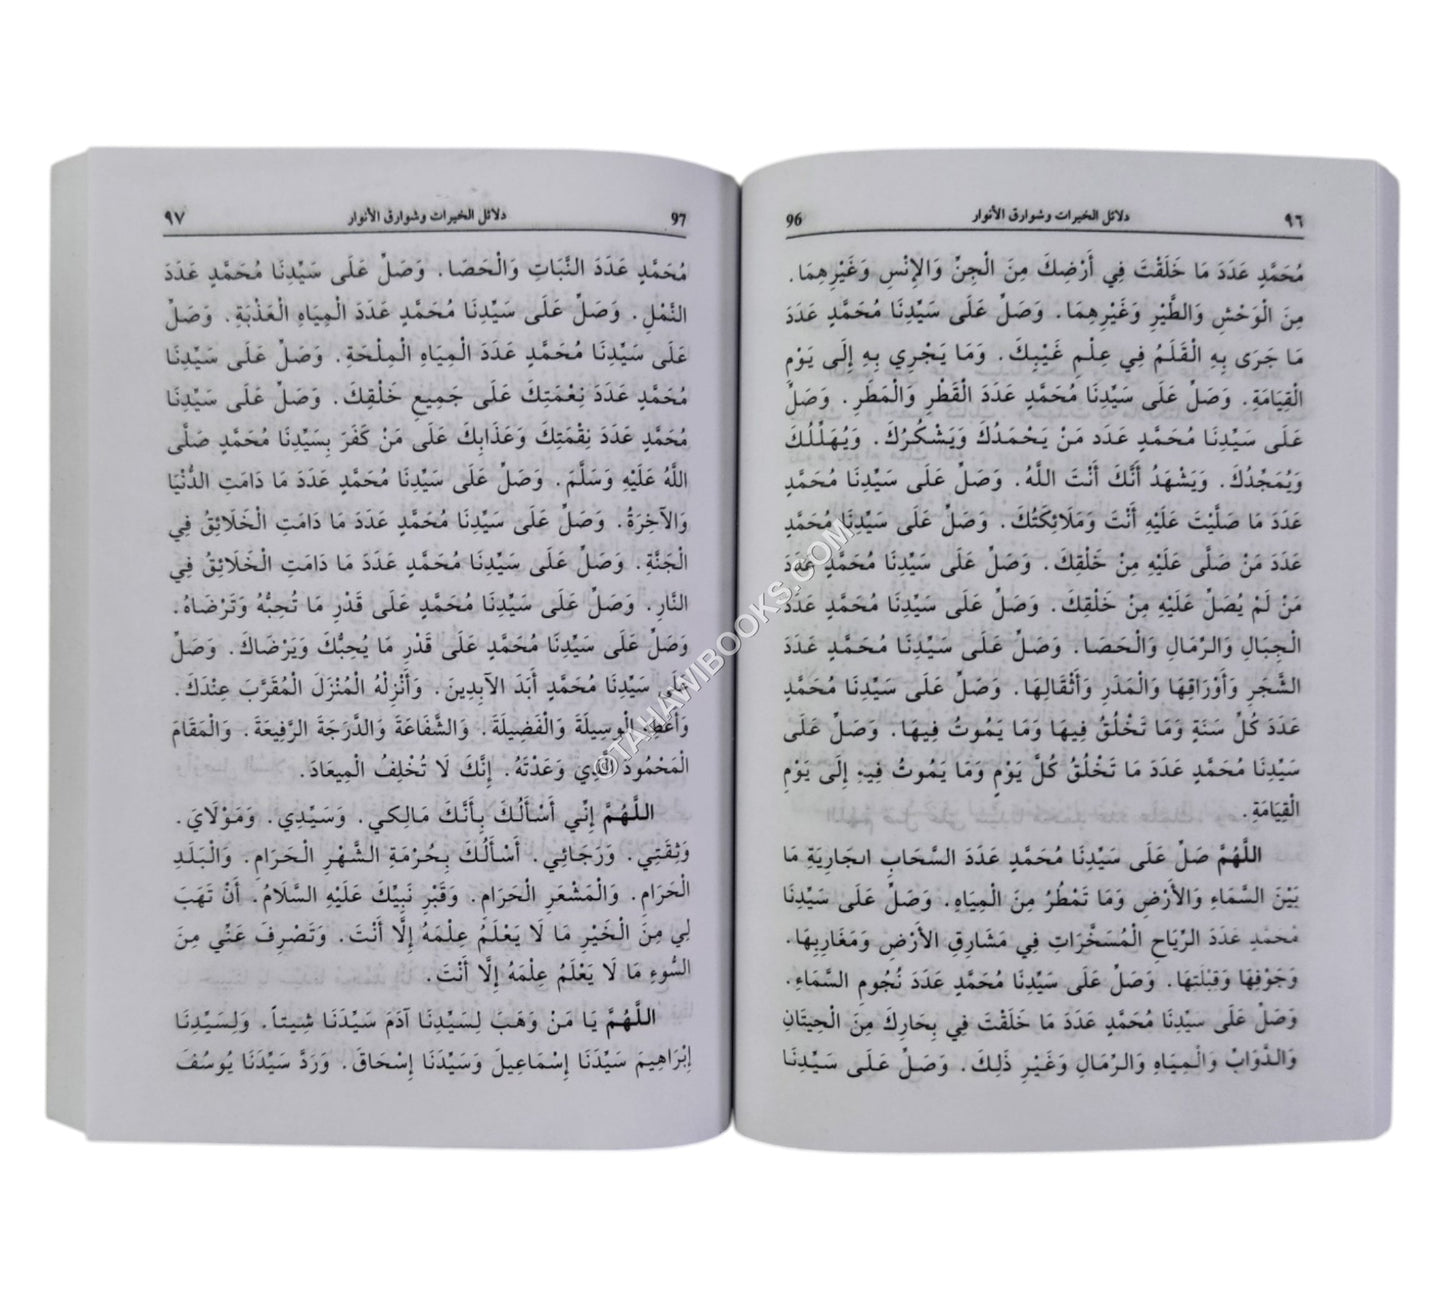 ٩٦ دلائل الخيرات وشوارق الأنوار 96
مُحَمَّدٍ عَدَدَ مَا خَلَقْتَ فِي أَرْضِكَ مِنَ الْجِنِّ وَالإِنْسِ وَغَيْرِهِمَا.
مِنَ الْوَحْشِ وَالطَّيْرِ وَغَيْرِهِمَا. وَصَلِّ عَلَى سَيِّدِنَا مُحَمَّدٍ عَدَدَ
مَا جَرَى بِهِ الْقَلَمُ فِي عِلْمِ غَيْبِكَ. وَمَا يَجْرِي بِهِ إِلَى يَوْمِ
الْقِيَامَةِ. وَصَلِّ عَلَى سَيِّدِنَا مُحَمَّدٍ عَدَدَ الْقَطْرِ وَالْمَطَرِ. وَصَلِّ
عَلَى سَيِّدِنَا مُحَمَّدٍ عَدَد مَنْ يَحْمَدُكَ وَيَشْكُرُكَ. وَيُهَلِّلُكَ
وَيُمَجِّدُكَ. وَيَشْهَدُ أَنَّكَ أَنْتَ اللَّهُ. وَصَلِّ عَلَى سَيِّدِنَا مُحَمَّدٍ
عَدَدَ مَا صَلَّيْتَ عَلَيْهِ أَنْتَ وَمَلَائِكَتُكَ. وَصَلِّ عَلَى سَيِّدِنَا مُحَمَّدٍ
عَدَدَ مَنْ صَلَّى عَلَيْهِ مِنْ خَلْقِكَ. وَصَلِّ عَلَى سَيِّدِنَا مُحَمَّدٍ عَدَدَ
مَنْ لَمْ يُصَلِّ عَلَيْهِ مِنْ خَلْقِكَ. وَصَلِّ عَلَى سَيِّدِنَا مُحَمَّدٍ عَدَدَ
الْجِبَالِ وَالرِّمَالِ وَالْحَصَا. وَصَلِّ عَلَى سَيِّدِنَا مُحَمَّدٍ عَدَدَ
الشَّجَرِ وَأَوْرَاقِهَا وَالْمَدَرِ وَأَثْقَالِهَا. وَصَلِّ عَلَى سَيِّدِنَا مُحَمَّدٍ
عَدَدَ كُلِّ سَنَةٍ وَمَا تَخْلُقُ فِيهَا وَمَا يَمُوتُ فِيهَا. وَصَلِّ عَلَى
سَيِّدِنَا مُحَمَّدٍ عَدَدَ مَا تَخْلُقُ كُلَّ يَوْمٍ وَمَا يَمُوتُ فِيهِ إِلَى يَوْمِ
الْقِيَامَةِ.
اللَّهُمَّ صَلِّ عَلَى سَيِّدِنَا مُحَمَّدٍ عَدَدَ السَّحَابِ الجَارِيَةِ مَا
بَيْنَ السَّمَاءِ وَالأَرْضِ وَمَا تَمْطُرُ مِنَ الْمِيَاهِ. وَصَلِّ عَلَى سَيِّدِنَا
مُحَمَّدٍ عَدَدَ الرِّيَاحِ الْمُسَخَّرَاتِ فِي مَشَارِقِ الأَرْضِ وَمَغَارِبِهَا.
وَجَوْفِهَا وَقِبْلَتِهَا. وَصَلِّ عَلَى سَيِّدِنَا مُحَمَّدٍ عَدَدَ نُجُومِ السَّمَاءِ.
وَصَلِّ عَلَى سَيِّدِنَا مُحَمَّدٍ عَدَدَ مَا خَلَقْتَ فِي بِحَارِكَ مِنَ الْحِيتَانِ
وَالدَّوَابِّ وَالْمِيَاهِ وَالرِّمَالِ وَغَيْرِ ذَلِكَ. وَصَلِّ عَلَى سَيِّدِنَا
٩٧ دلائل الخيرات وشوارق الأنوار 97
مُحَمَّدٍ عَدَدَ النَّبَاتِ وَالْحَصَا. وَصَلِّ عَلَى سَيِّدِنَا مُحَمَّدٍ عَدَدَ
النَّمْلِ. وَصَلِّ عَلَى سَيِّدِنَا مُحَمَّدٍ عَدَدَ الْمِيَاهِ الْعَذْبَةِ. وَصَلِّ
عَلَى سَيِّدِنَا مُحَمَّدٍ عَدَدَ الْمِيَاهِ الْمِلْحَةِ. وَصَلِّ عَلَى سَيِّدِنَا
مُحَمَّدٍ عَدَدَ نِعْمَتِكَ عَلَى جَمِيعِ خَلْقِكَ. وَصَلِّ عَلَى سَيِّدِنَا
مُحَمَّدٍ عَدَدَ نِقْمَتِكَ وَعَذَابِكَ عَلَى مَنْ كَفَرَ بِسَيِّدِنَا مُحَمَّدٍ صَلَّى
اللَّهُ عَلَيْهِ وَسَلَّمَ. وَصَلِّ عَلَى سَيِّدِنَا مُحَمَّدٍ عَدَدَ مَا دَامَتِ الدُّنْيَا
وَالآخِرَةُ. وَصَلِّ عَلَى سَيِّدِنَا مُحَمَّدٍ عَدَدَ مَا دَامَتِ الْخَلَائِقُ فِي
الْجَنَّةِ. وَصَلِّ عَلَى سَيِّدِنَا مُحَمَّدٍ عَدَدَ مَا دَامَتِ الْخَلَائِقُ فِي
النَّارِ. وَصَلِّ عَلَى سَيِّدِنَا مُحَمَّدٍ عَلَى قَدْرِ مَا تُحِبُّهُ وَتَرْضَاهُ.
وَصَلِّ عَلَى سَيِّدِنَا مُحَمَّدٍ عَلَى قَدْرِ مَا يُحِبُّكَ وَيَرْضَاكَ. وَصَلِّ
عَلَى سَيِّدِنَا مُحَمَّدٍ أَبَدَ الآبِدِينَ. وَأَنْزِلْهُ الْمُنْزَلَ الْمُقَرَّبَ عِنْدَكَ.
وَأَعْطِهِ الْوَسِيلَةَ وَالْفَضِيلَةَ. وَالشَّفَاعَةَ وَالدَّرَجَةَ الرَّفِيعَةَ. وَالْمَقَامَ
الْمَحْمُودَ الَّذِي وَعَدْتَهُ. إِنَّكَ لَا تُخْلِفُ الْمِيعَادَ.
اللَّهُمَّ إِنِّي أَسْأَلُكَ بِأَنَّكَ مَالِكِي. وَسَيِّدِي. وَمَوْلَايَ.
وَثِقَتِي. وَرَجَائِي. أَسْأَلُكَ بِحُرْمَةِ الشَّهْرِ الْحَرَامِ. وَالْبَلَدِ
الْحَرَامِ. وَالْمَشْعَرِ الْحَرَامِ. وَقَبْرِ نَبِيِّكَ عَلَيْهِ السَّلَامُ. أَنْ تَهَبَ
لِي مِنَ الْخَيْرِ مَا لَا يَعْلَمُ عِلْمَهُ إِلَّا أَنْتَ. وَتَصْرِفَ عَنِّي مِنَ
السُّوءِ مَا لَا يَعْلَمُ عِلْمَهُ إِلَّا أَنْتَ.
اللَّهُمَّ يَا مَنْ وَهَبَ لِسَيِّدِنَا آدَمَ سَيِّدَنَا شِيتاً. وَلِسَيِّدِنَا
إِبْرَاهِيمَ سَيِّدَنَا إِسْمَاعِيلَ وَسَيِّدَنَا إِسْحَاقَ. وَرَدَّ سَيِّدَنَا يُوسُفَ
©TAHAWIBOOKS.COM